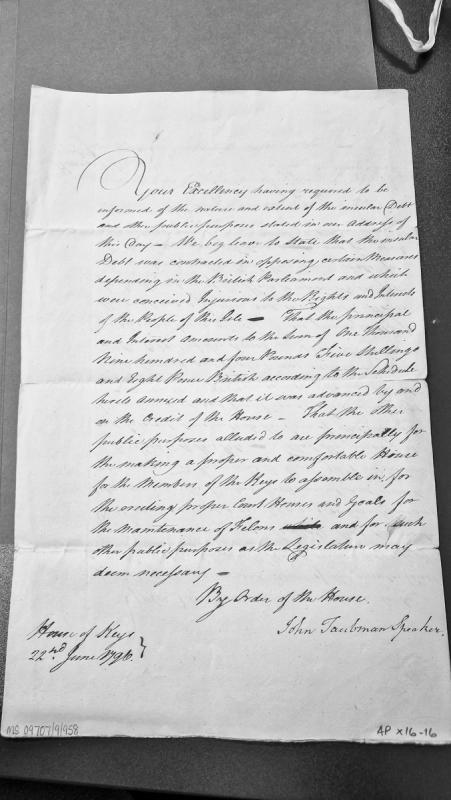 Your Excellency having required to be
informed of the nature and extent of the insular Debt
and other public purposes stated in our Address of
this Day — We beg leave to state that the insular
Debt was contracted in opposing certain Measures
depending in the British Parliament and which
were conceived Injurious to the Rights and Interests
of the People of this Isle — That the principal
and Interest amounts to the Sum of One Thousand
Nine hundred and four Pounds Five Shillings
and Eight Pence British according to the Schedule
hereto annexed and that it was advanced by and
on the Credit of the House — That the other
public purposes alluded to are principally for
the making a proper and comfortable House
for the Members of the Keys to assemble in, for
the erecting proper Court Houses and Goals for
the Maintenance of Felons and for such
other public purposes as the Legislature may
deem necessary —
By Order of the House.
John Taubman Speaker.
House of Keys
22nd June 1796.
MS 09707/9/958
AP X16-16